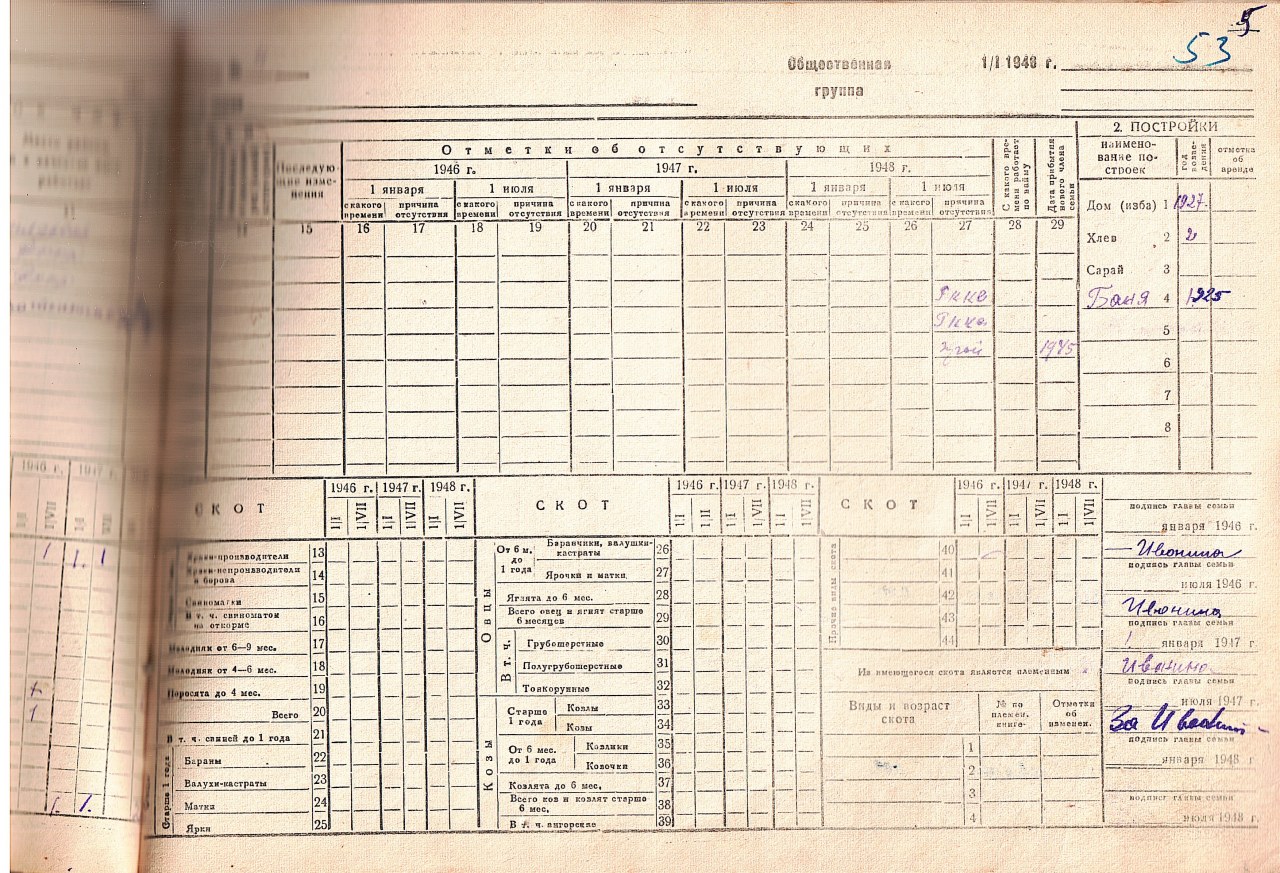 5
53
Общественная группа
1/I 1948 г.
2. ПОСТРОЙКИ
наимено-
вание по-
строек
год
возве-
дения
отметка
об
аренде
Последую-
щие изме-
нения
Отметки об отсутствующих
1946 г.
1947 г.
1948 г.
1 января
1 июля
1 января
1 июля
1 января
1 июля
с какого времени
причина отсутствия
с какого времени
причина отсутствия
с какого времени
причина отсутствия
с какого времени
причина отсутствия
с какого времени
причина отсутствия
с какого времени
причина отсутствия
С какого вре-
мени работает
по найму
Дата прибытия
нового члена
семьи
15 16 17 18 19 20 21 22 23 24 25 26 27 28 29
Дом (изба) 1 1927
Хлев 2 2
Сарай 3
Баня 4 1925
5
1945
6
7
8
1946 г. 1947 г.
СКОТ
1946 г. 1947 г. 1948 г.
1/I 1/VII 1/I 1/VII 1/I 1/VII
Хряки-производители 13
Хряки-непроизводители
и борова 14
Свиноматки 15
В т. ч. свиноматок
на откорме 16
Молодняк от 6—9 мес. 17
Молодняк от 4—6 мес. 18
Поросята до 4 мес. 19
Всего 20
В т. ч. свиней до 1 года 21
Старше 1 года
Бараны 22
Валухи-кастраты 23
Матки 24
Ярки 25
СКОТ
1946 г. 1947 г. 1948 г.
1/I 1/II 1/I 1/VII 1/I 1/VII
Овцы
От 6 м.
до
1 года
Баранчики, валушки-
кастраты 26
Ярочки и матки 27
Ягнята до 6 мес. 28
Всего овец и ягнят старше
6 месяцев 29
В т. ч.
Грубошерстные 30
Полугрубошерстные 31
Тонкорунные 32
Козы
Старше
1 года
Козлы 33
Козы 34
От 6 мес.
до 1 года
Козлики 35
Козочки 36
Козлята до 6 мес. 37
Всего коз и козлят старше
6 мес. 38
В т. ч. ангорские 39
СКОТ
1946 г. 1947 г. 1948 г.
1/I 1/VII 1/I 1/VII 1/I 1/VII
Прочие виды скота
40
41
42
43
44
Из имеющегося скота является племенным
Виды и возраст
скота
№ по
племен.
книге
Отметки
об
изменен.
1
2
3
4
подпись главы семьи
января 1946 г.
Ивонина
подпись главы семьи
июля 1946 г.
Ивонина
подпись главы семьи
января 1947 г.
Ивонина
подпись главы семьи
июля 1947 г.
За
подпись главы семьи
января 1948 г.
подпись главы семьи
июля 1948 г.